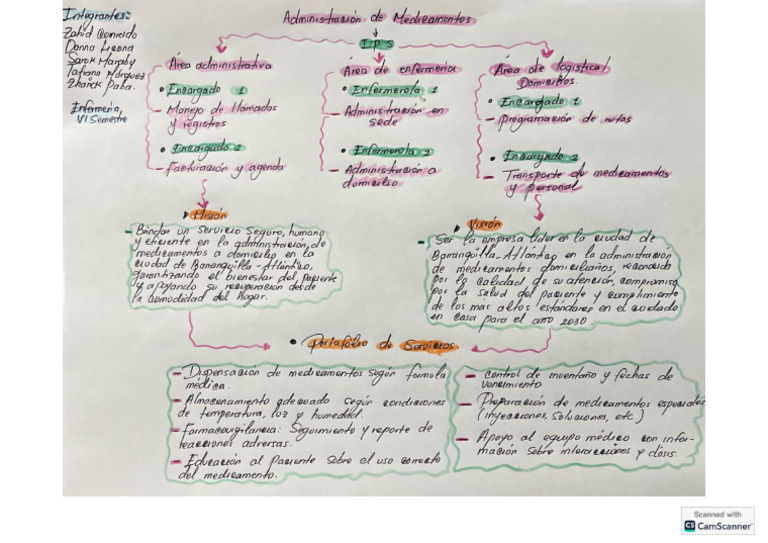 Integrantes:
Zahid
Danna
Sarok Murphy
Tatiana
Paba.
Enfermeria,
VI Semestre
Administración de Medicamentos
IPS
Área administrativa
• Encargado 1
— Manejo de llamadas
y registros
• Encargado 2
— Facturación y agenda
Área de enfermeria
• Enfermero/a 1
— Administración en
sede
• Enfermero/a 2
— Administración a
domicilio
Área de logistica/
Domicilios.
• Encargado 1
— Programación de rutas
• Encargado 2
— Transporte de medicamentos
y personal
Misión
— Brindar un servicio seguro, humano
y eficiente en la administración, de
medicamentos a domicilio en la
ciudad de Barranquilla-Atlántico,
garantizando el bienestar del paciente
y apoyando su recuperación desde
la comodidad del hogar.
Visión
— Ser la empresa lider en la ciudad de
Barranquilla-Atlántico en la administración
de medicamentos domiciliarios, reconocida
por la calidad de su atención, compromiso
por la salud del paciente y cumplimiento
de los mas altos estándares en el cuidado
en casa para el año 2030.
• Portafolio de Servicios.
— Dispensación de medicamentos según formula
médica.
— Almacenamiento adecuado según condiciones
de temperatura, luz y humedad.
— Farmacovigilancia: Seguimiento y reporte de
reacciones adversas.
— Educación al paciente sobre el uso correcto
del medicamento.
— Control de inventario y fechas de
vencimiento
— Preparación de medicamentos especiales
(inyecciones, soluciones, etc)
— Apoyo al equipo médico con infor-
mación sobre interacciones y dosis.
Scanned with
CS CamScanner